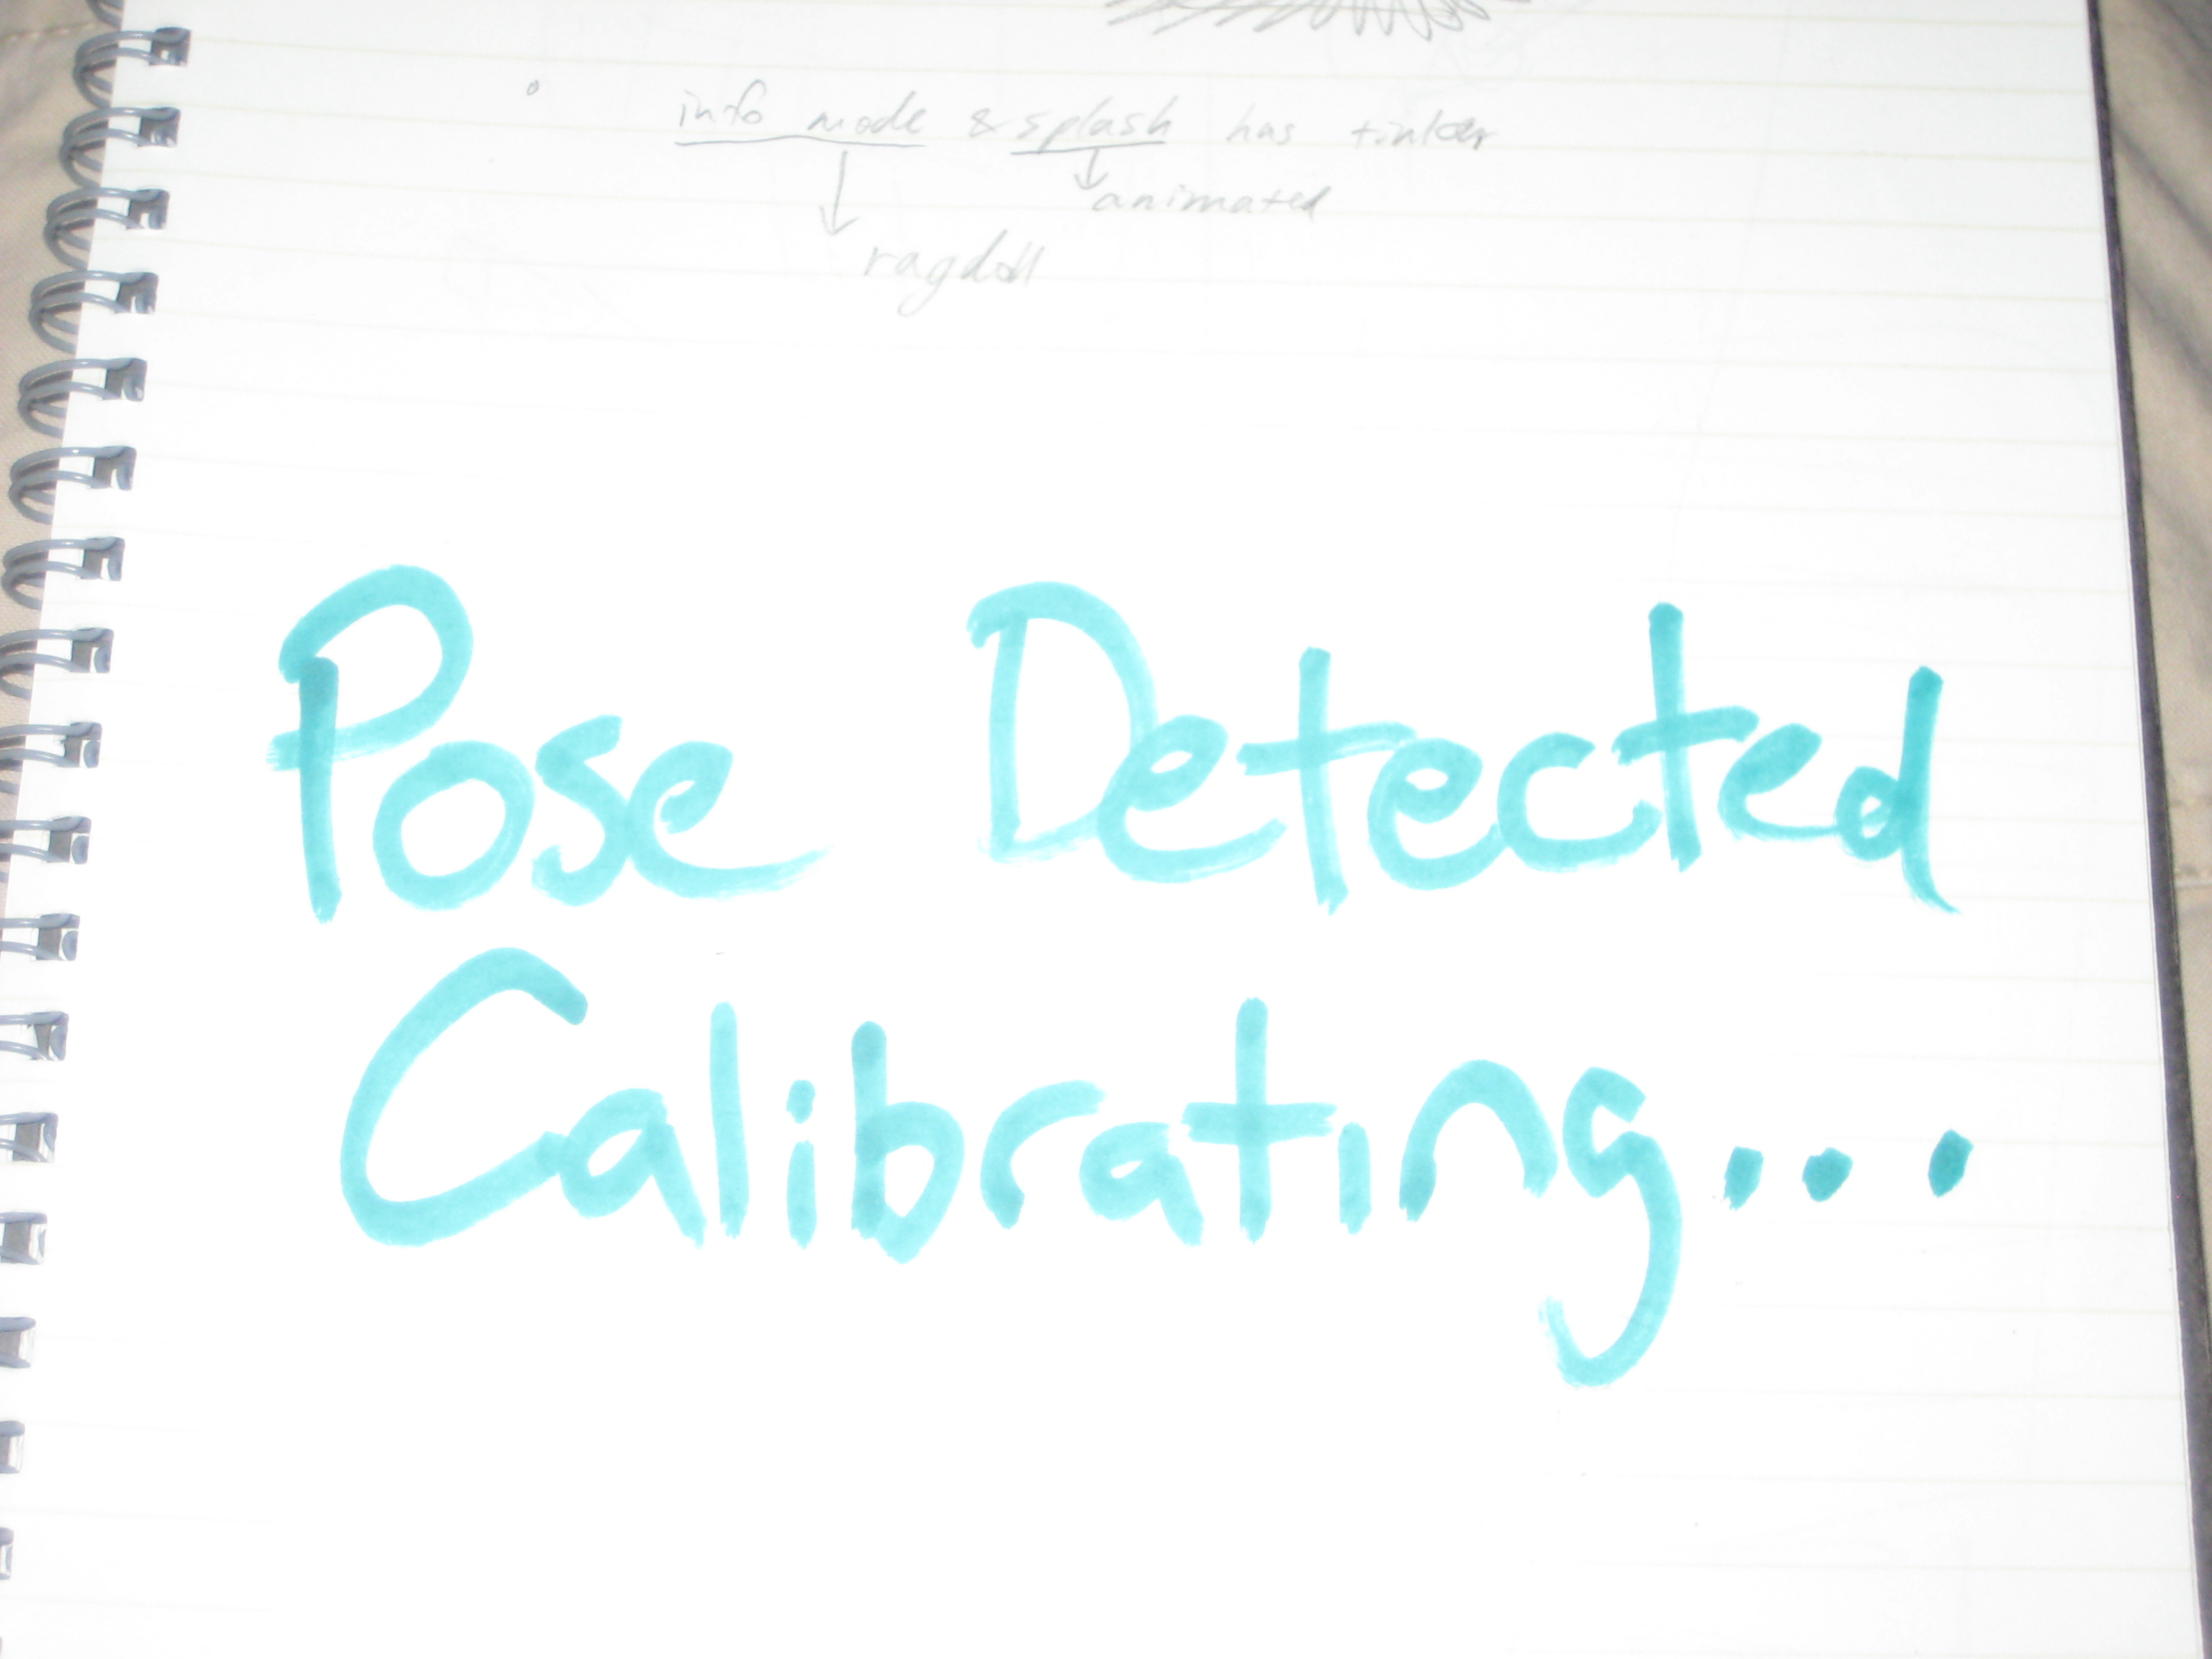 info mode & splash has tinker
animated
ragdoll
Pose Detected
Calibrating...